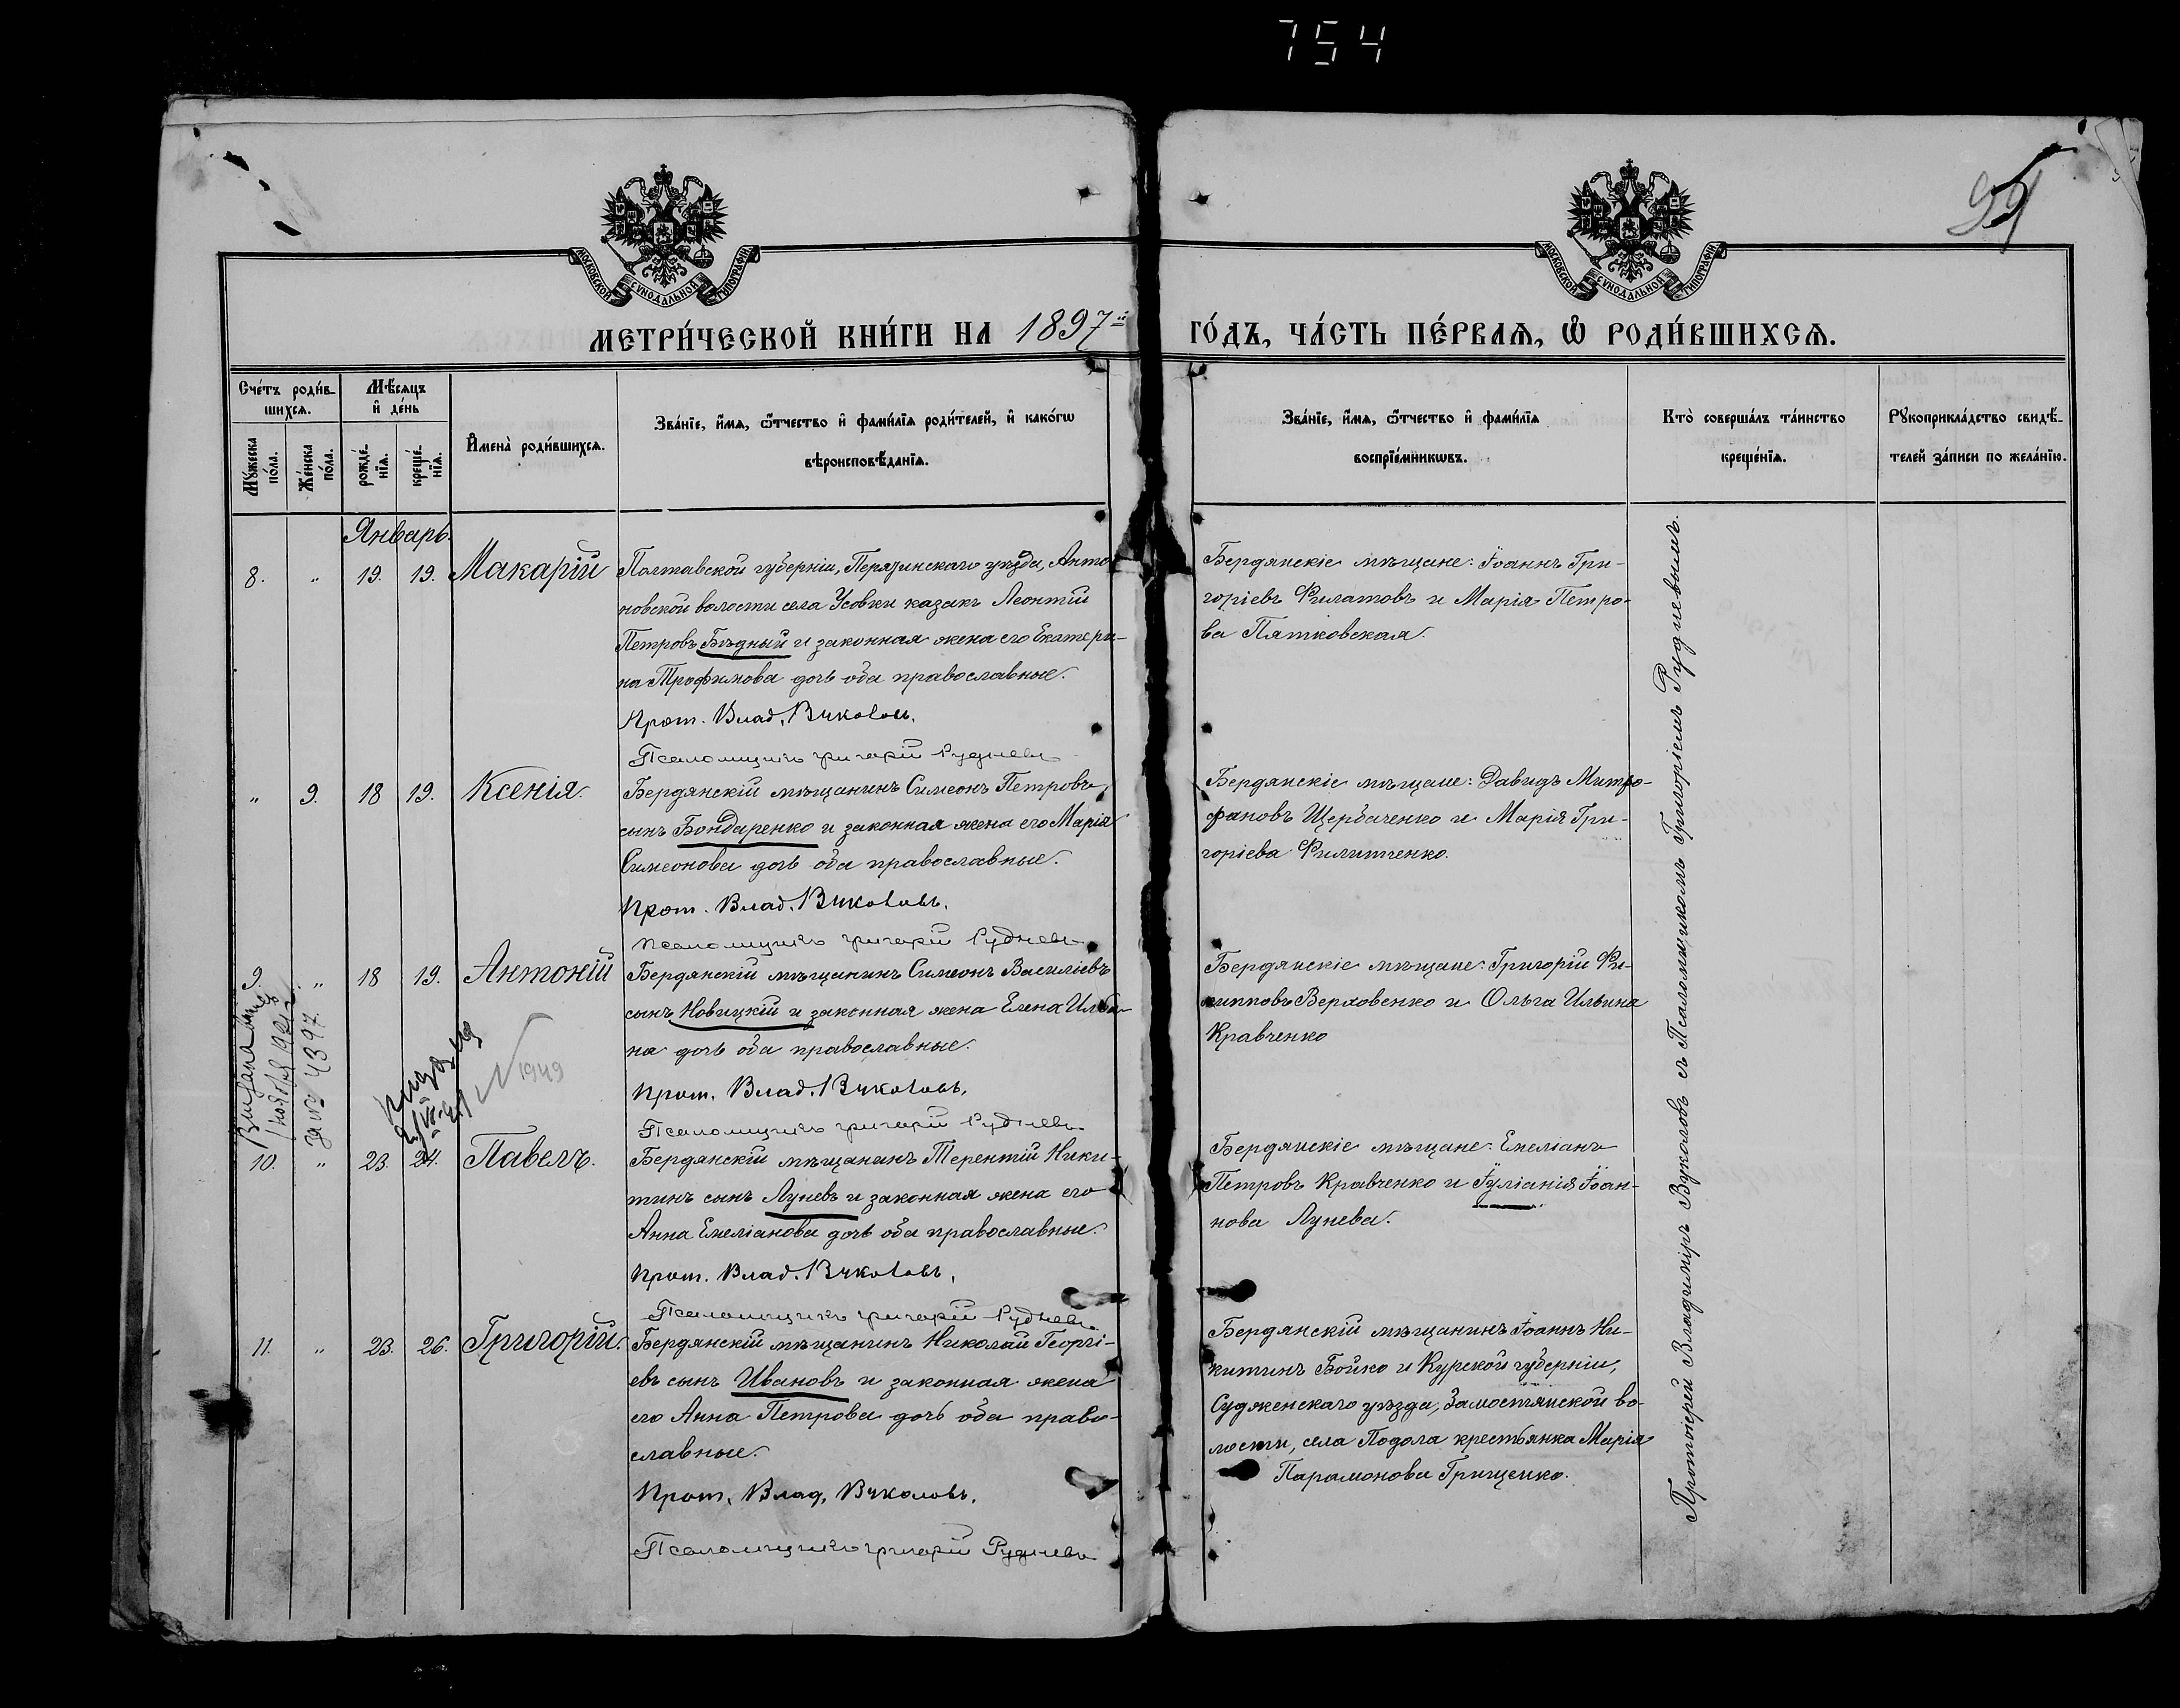 754
99
МОСКОВСКОЙ СѴНОДАЛЬНОЙ ТИПОГРАФІИ
МОСКОВСКОЙ СѴНОДАЛЬНОЙ ТИПОГРАФІИ
МЕТРИ́ЧЕСКОЙ КНИ́ГИ НА 1897й ГО́ДЪ, ЧА́СТЬ ПЕ́РВАѦ, Ѽ РОДИ́ВШИХСѦ.
Счéтъ роди́в-
шихсѧ.
Мꙋ́жеска
по́ла.
Же́нска
по́ла.
Мѣ́сѧцъ
и҆ де́нь
рожде́-
нїѧ.
креще́-
нїѧ.
И҆мена̀ роди́вшихсѧ.
Зва́нїе, и҆́мѧ, ѻ҆́тчество и҆ фами́лїѧ роди́телей, и҆ како́гѡ
вѣроисповѣ́данїѧ.
Зва́нїе, и҆́мѧ, ѻ҆́тчество и҆ фами́лїѧ
воспрїе́мникѡвъ.
Кто̀ соверша́лъ та́инство
креще́нїѧ.
Рꙋкоприкла́дство свидѣ́-
телей за́писи по жела́нїю.
Январь.
8. " 19. 19. Макарій
Полтавской губерніи, Пирятинскаго уѣзда, Анто-
новской волости села Усовки казакъ Леонтій
Петровъ Бѣдный и законная жена его Екатери-
на Трофимова дочь оба православные.
Прот. Влад. Вуколовъ.
Псаломщикъ Григорій Рудневъ
Бердянскіе мѣщане: Іоаннъ Гри-
горіевъ Филатовъ и Марія Петро-
ва Пятковская.
" 9. 18 19. Ксенія.
Бердянскій мѣщанинъ Симеонъ Петровъ
сынъ Бондаренко и законная жена его Марія
Симеонова дочь оба православные.
Прот. Влад. Вуколовъ.
Псаломщикъ Григорій Рудневъ
Бердянскіе мѣщане: Давидъ Митро-
фановъ Щербаченко и Марія Гри-
горіева Филипченко.
9. " 18 19. Антоній
Бердянскій мѣщанинъ Симеонъ Василіевъ
сынъ Новицкій и законная жена Елена Ильи-
на дочь оба православные.
Прот. Влад. Вуколовъ.
Псаломщикъ Григорій Рудневъ
Бердянскіе мѣщане: Григорій Фи-
липповъ Верховенко и Ольга Ильина
Кравченко
за № 4397.
1949
10. " 23. 24. Павелъ.
Бердянскій мѣщанинъ Терентій Ники-
тинъ сынъ Луневъ и законная жена его
Анна Емеліанова дочь оба православные.
Прот. Влад. Вуколовъ.
Псаломщикъ Григорій Рудневъ
Бердянскіе мѣщане: Емеліанъ
Петровъ Кравченко и Іуліанія Іоан-
нова Лунева.
11. " 23. 26. Григорій.
Бердянскій мѣщанинъ Николай Георгі-
евъ сынъ Ивановъ и законная жена
его Анна Петрова дочь оба право-
славные.
Прот. Влад. Вуколовъ.
Псаломщикъ Григорій Рудневъ
Бердянскій мѣщанинъ Іоаннъ Ни-
китинъ Бойко и Курской губерніи,
Судженскаго уѣзда, Замостянской во-
лости, села Подола крестьянка Марія
Парамонова Грищенко.
Протоіерей Владиміръ Вуколовъ съ Псаломщикомъ Григоріемъ Рудневымъ.